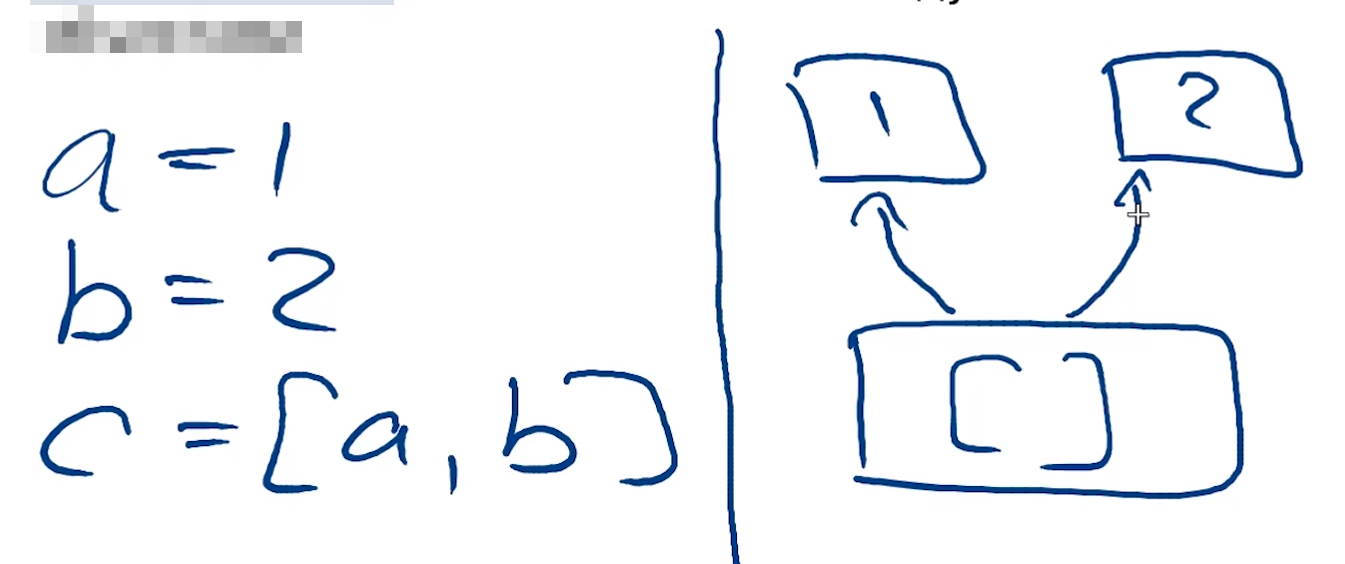 a = 1
b = 2
c = [a, b]
1
2
[ ]